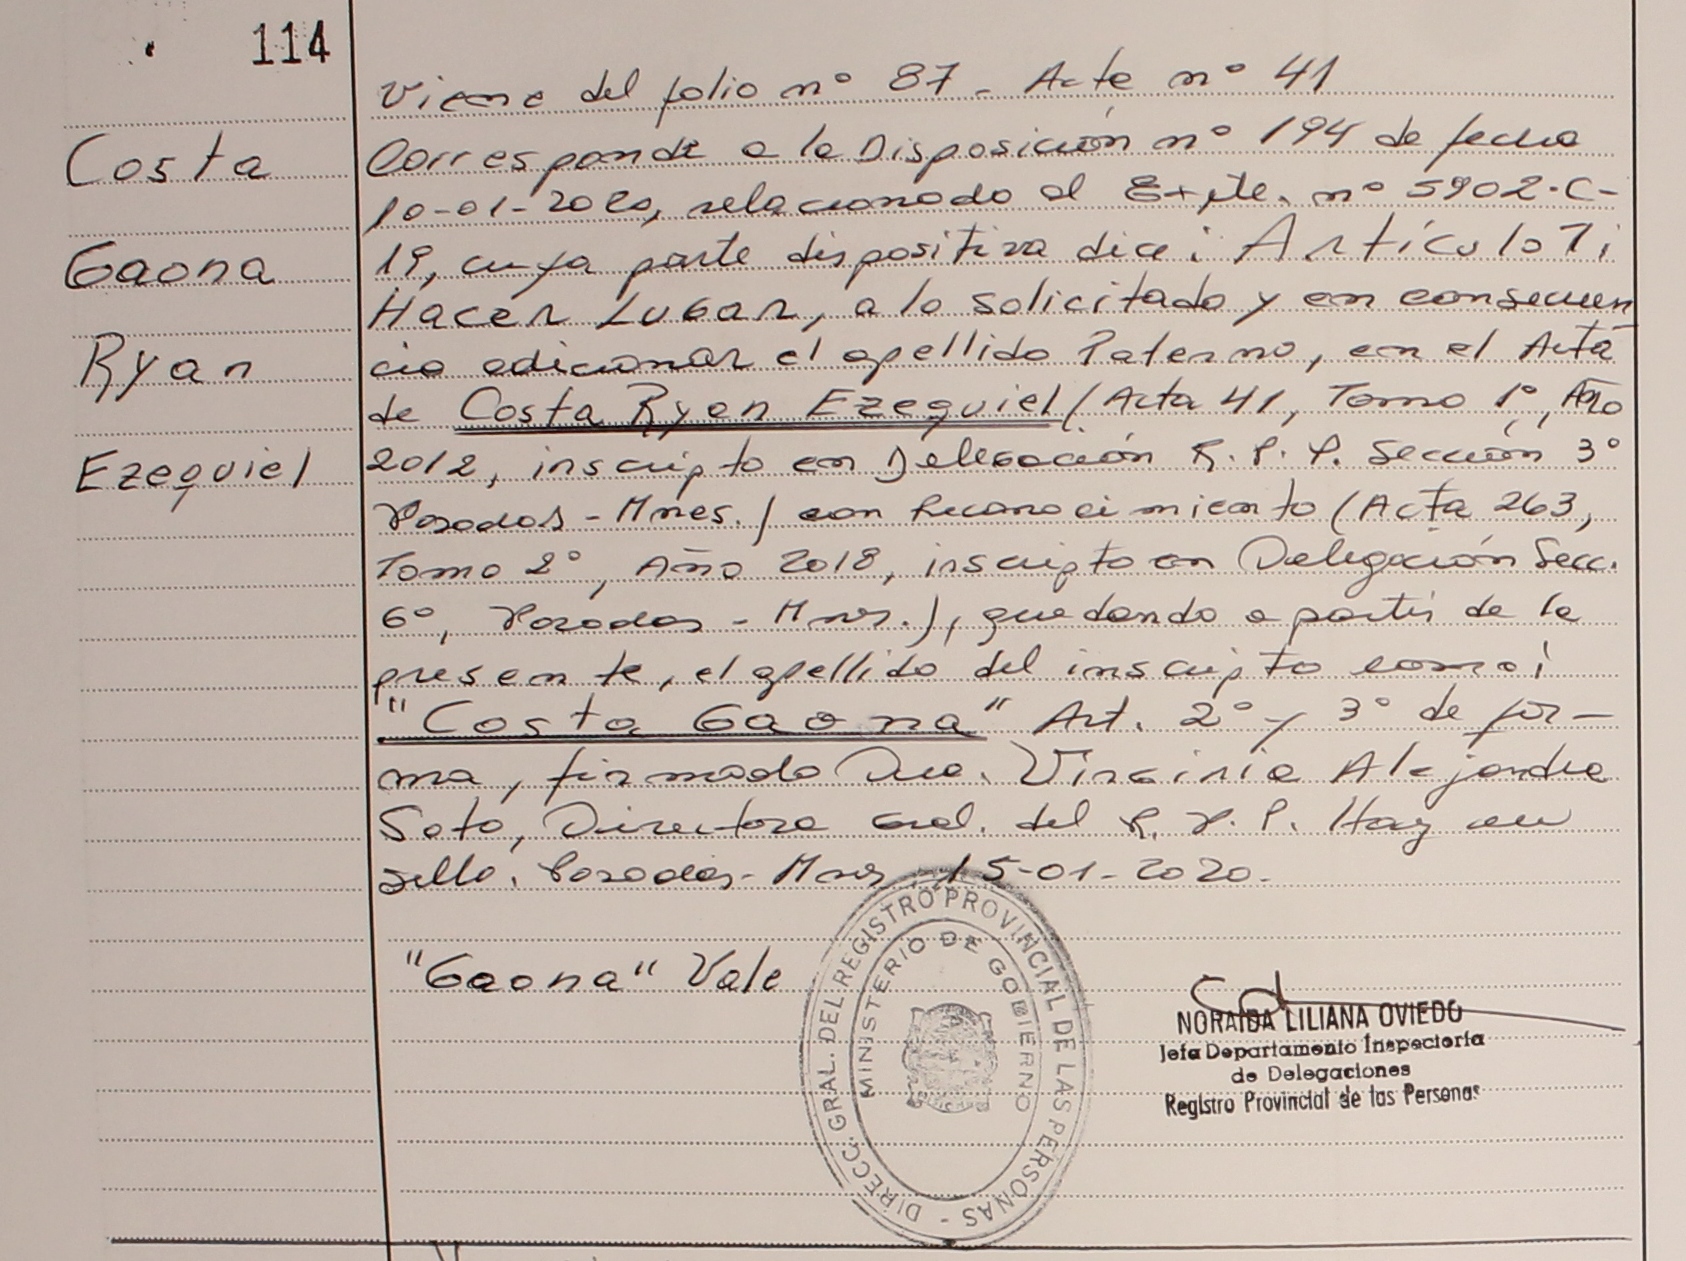 114
Costa
Gaona
Ryan
Ezequiel
Viene del folio nº 87 - Acta nº 41
Corresponde a la Disposición nº 194 de fecha
10-01-2020, relacionado al Expte. nº 5902-C-
19, cuya parte dispositiva dice: Artículo 1:
Hacer Lugar, a lo solicitado y en consecuen
cia adicionar el apellido Paterno, en el Acta
de Costa Ryan Ezequiel (Acta 41, Tomo 1º, Año
2012, inscripto en Delegación R. P. P. Sección 3º
Posadas - Mnes.) con Reconocimiento (Acta 263,
Tomo 2º, Año 2018, inscripto en Delegación Secc.
6º, Posadas - Mnes.), quedando a partir de la
presente, el apellido del inscripto como:
"Costa Gaona" Art. 2º y 3º de for-
ma, firmado Dra. Virginia Alejandra
Soto, Directora Gral. del R. P. P. Hay un
sello. Posadas - Mnes, 15-01-2020.
"Gaona" Vale
DIRECC. GRAL. DEL REGISTRO PROVINCIAL DE LAS PERSONAS -
MINISTERIO DE GOBIERNO
NORAIDA LILIANA OVIEDO
Jefa Departamento Inspectoría
de Delegaciones
Registro Provincial de las Personas